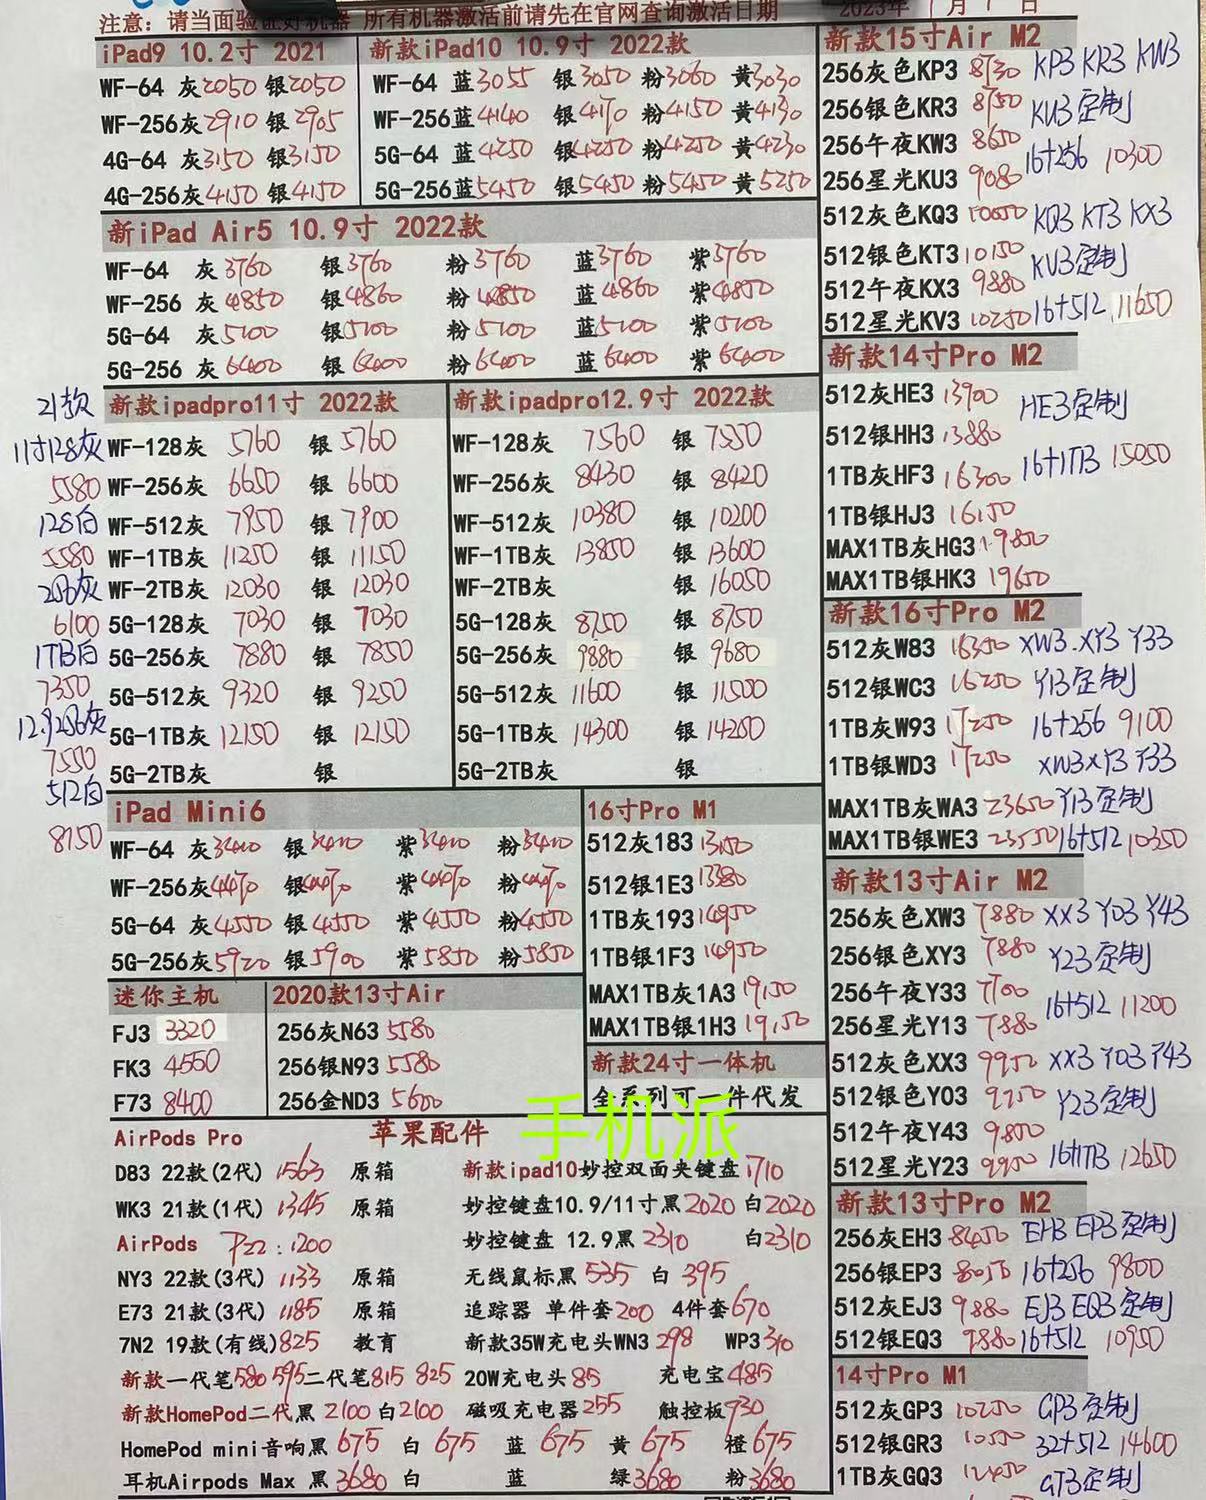 注意: 请当面验证好机器 所有机器激活前请先在官网查询激活日期
2023年 月 日
iPad9 10.2寸 2021
WF-64 灰2050 银2050
WF-256灰2910 银2905
4G-64 灰3150 银3150
4G-256灰4150 银4150
新款iPad10 10.9寸 2022款
WF-64 蓝3055 银3050 粉3060 黄3030
WF-256蓝4140 银4170 粉4150 黄4130
5G-64 蓝4250 银4250 粉4250 黄4230
5G-256蓝5450 银5450 粉5450 黄5250
新iPad Air5 10.9寸 2022款
WF-64 灰3760 银3760 粉3760 蓝3760 紫3760
WF-256 灰4850 银4860 粉4850 蓝4860 紫4850
5G-64 灰5100 银5100 粉5100 蓝5100 紫5100
5G-256 灰6400 银6400 粉6400 蓝6400 紫6400
21款
11寸128灰
5580
128白
5580
256灰
6100
1TB白
7350
12.9256灰
7550
512白
8150
新款ipadpro11寸 2022款
WF-128灰 5760 银 5760
WF-256灰 6650 银 6600
WF-512灰 7950 银 7900
WF-1TB灰 11250 银 11150
WF-2TB灰 12030 银 12030
5G-128灰 7030 银 7030
5G-256灰 7880 银 7850
5G-512灰 9320 银 9250
5G-1TB灰 12150 银 12150
5G-2TB灰 银
新款ipadpro12.9寸 2022款
WF-128灰 7560 银 7550
WF-256灰 8430 银 8420
WF-512灰 10380 银 10200
WF-1TB灰 13850 银 13600
WF-2TB灰 银 16050
5G-128灰 8750 银 8750
5G-256灰 9880 银 9680
5G-512灰 11600 银 11500
5G-1TB灰 14300 银 14250
5G-2TB灰 银
iPad Mini6
WF-64 灰3400 银3400 紫3400 粉3400
WF-256灰4470 银4470 紫4470 粉4470
5G-64 灰4550 银4550 紫4550 粉4550
5G-256灰5920 银5900 紫5850 粉5850
16寸Pro M1
512灰183 13150
512银1E3 13380
1TB灰193 14950
1TB银1F3 14950
MAX1TB灰1A3 19150
MAX1TB银1H3 19150
迷你主机
FJ3 3320
FK3 4550
F73 8400
2020款13寸Air
256灰N63 5580
256银N93 5580
256金ND3 5600
新款24寸一体机
全系列可一件代发
手机派
苹果配件
AirPods Pro
D83 22款(2代) 1563 原箱
WK3 21款(1代) 1345 原箱
AirPods P22: 1200
NY3 22款(3代) 1133 原箱
E73 21款(3代) 1185 原箱
7N2 19款(有线)825 教育
新款一代笔580 595 二代笔815 825
新款HomePod二代黑 2100 白2100
HomePod mini音响黑 675 白 675 蓝 675 黄 675 橙 675
耳机Airpods Max 黑 3680 白 蓝 绿3680 粉3680
新款ipad10妙控双面夹键盘1710
妙控键盘10.9/11寸黑2020 白2020
妙控键盘 12.9黑 2310 白2310
无线鼠标黑 535 白 395
追踪器 单件套200 4件套670
新款35W充电头WN3 298 WP3 310
20W充电头 85 充电宝485
磁吸充电器255 触控板930
新款15寸Air M2
256灰色KP3 8730 KP3 KR3 KW3
256银色KR3 8750 KU3定制
256午夜KW3 8650 16+256 10300
256星光KU3 9080
512灰色KQ3 10050 KQ3 KT3 KX3
512银色KT3 10150 KV3定制
512午夜KX3 9880
512星光KV3 10250 16+512 11650
新款14寸Pro M2
512灰HE3 13900 HE3定制
512银HH3 13880
1TB灰HF3 16300 16+1TB 15050
1TB银HJ3 16150
MAX1TB灰HG3 19850
MAX1TB银HK3 19650
新款16寸Pro M2
512灰W83 16350 XW3.XY3 Y33
512银WC3 16250 Y13定制
1TB灰W93 17250 16+256 9100
1TB银WD3 17250 XW3XY3 Y33
MAX1TB灰WA3 23650 Y13定制
MAX1TB银WE3 23550 16+512 10350
新款13寸Air M2
256灰色XW3 7880 XX3 Y03 Y43
256银色XY3 7880 Y23定制
256午夜Y33 7700 16+512 11200
256星光Y13 7880
512灰色XX3 9950 XX3 Y03 Y43
512银色Y03 9950 Y23定制
512午夜Y43 9800
512星光Y23 9950 16+1TB 12650
新款13寸Pro M2
256灰EH3 8450 EH3 EP3定制
256银EP3 8050 16+256 9800
512灰EJ3 9880 EJ3 EQ3定制
512银EQ3 9880 16+512 10950
14寸Pro M1
512灰GP3 10250 GP3定制
512银GR3 10550 32+512 14600
1TB灰GQ3 12450 GT3定制